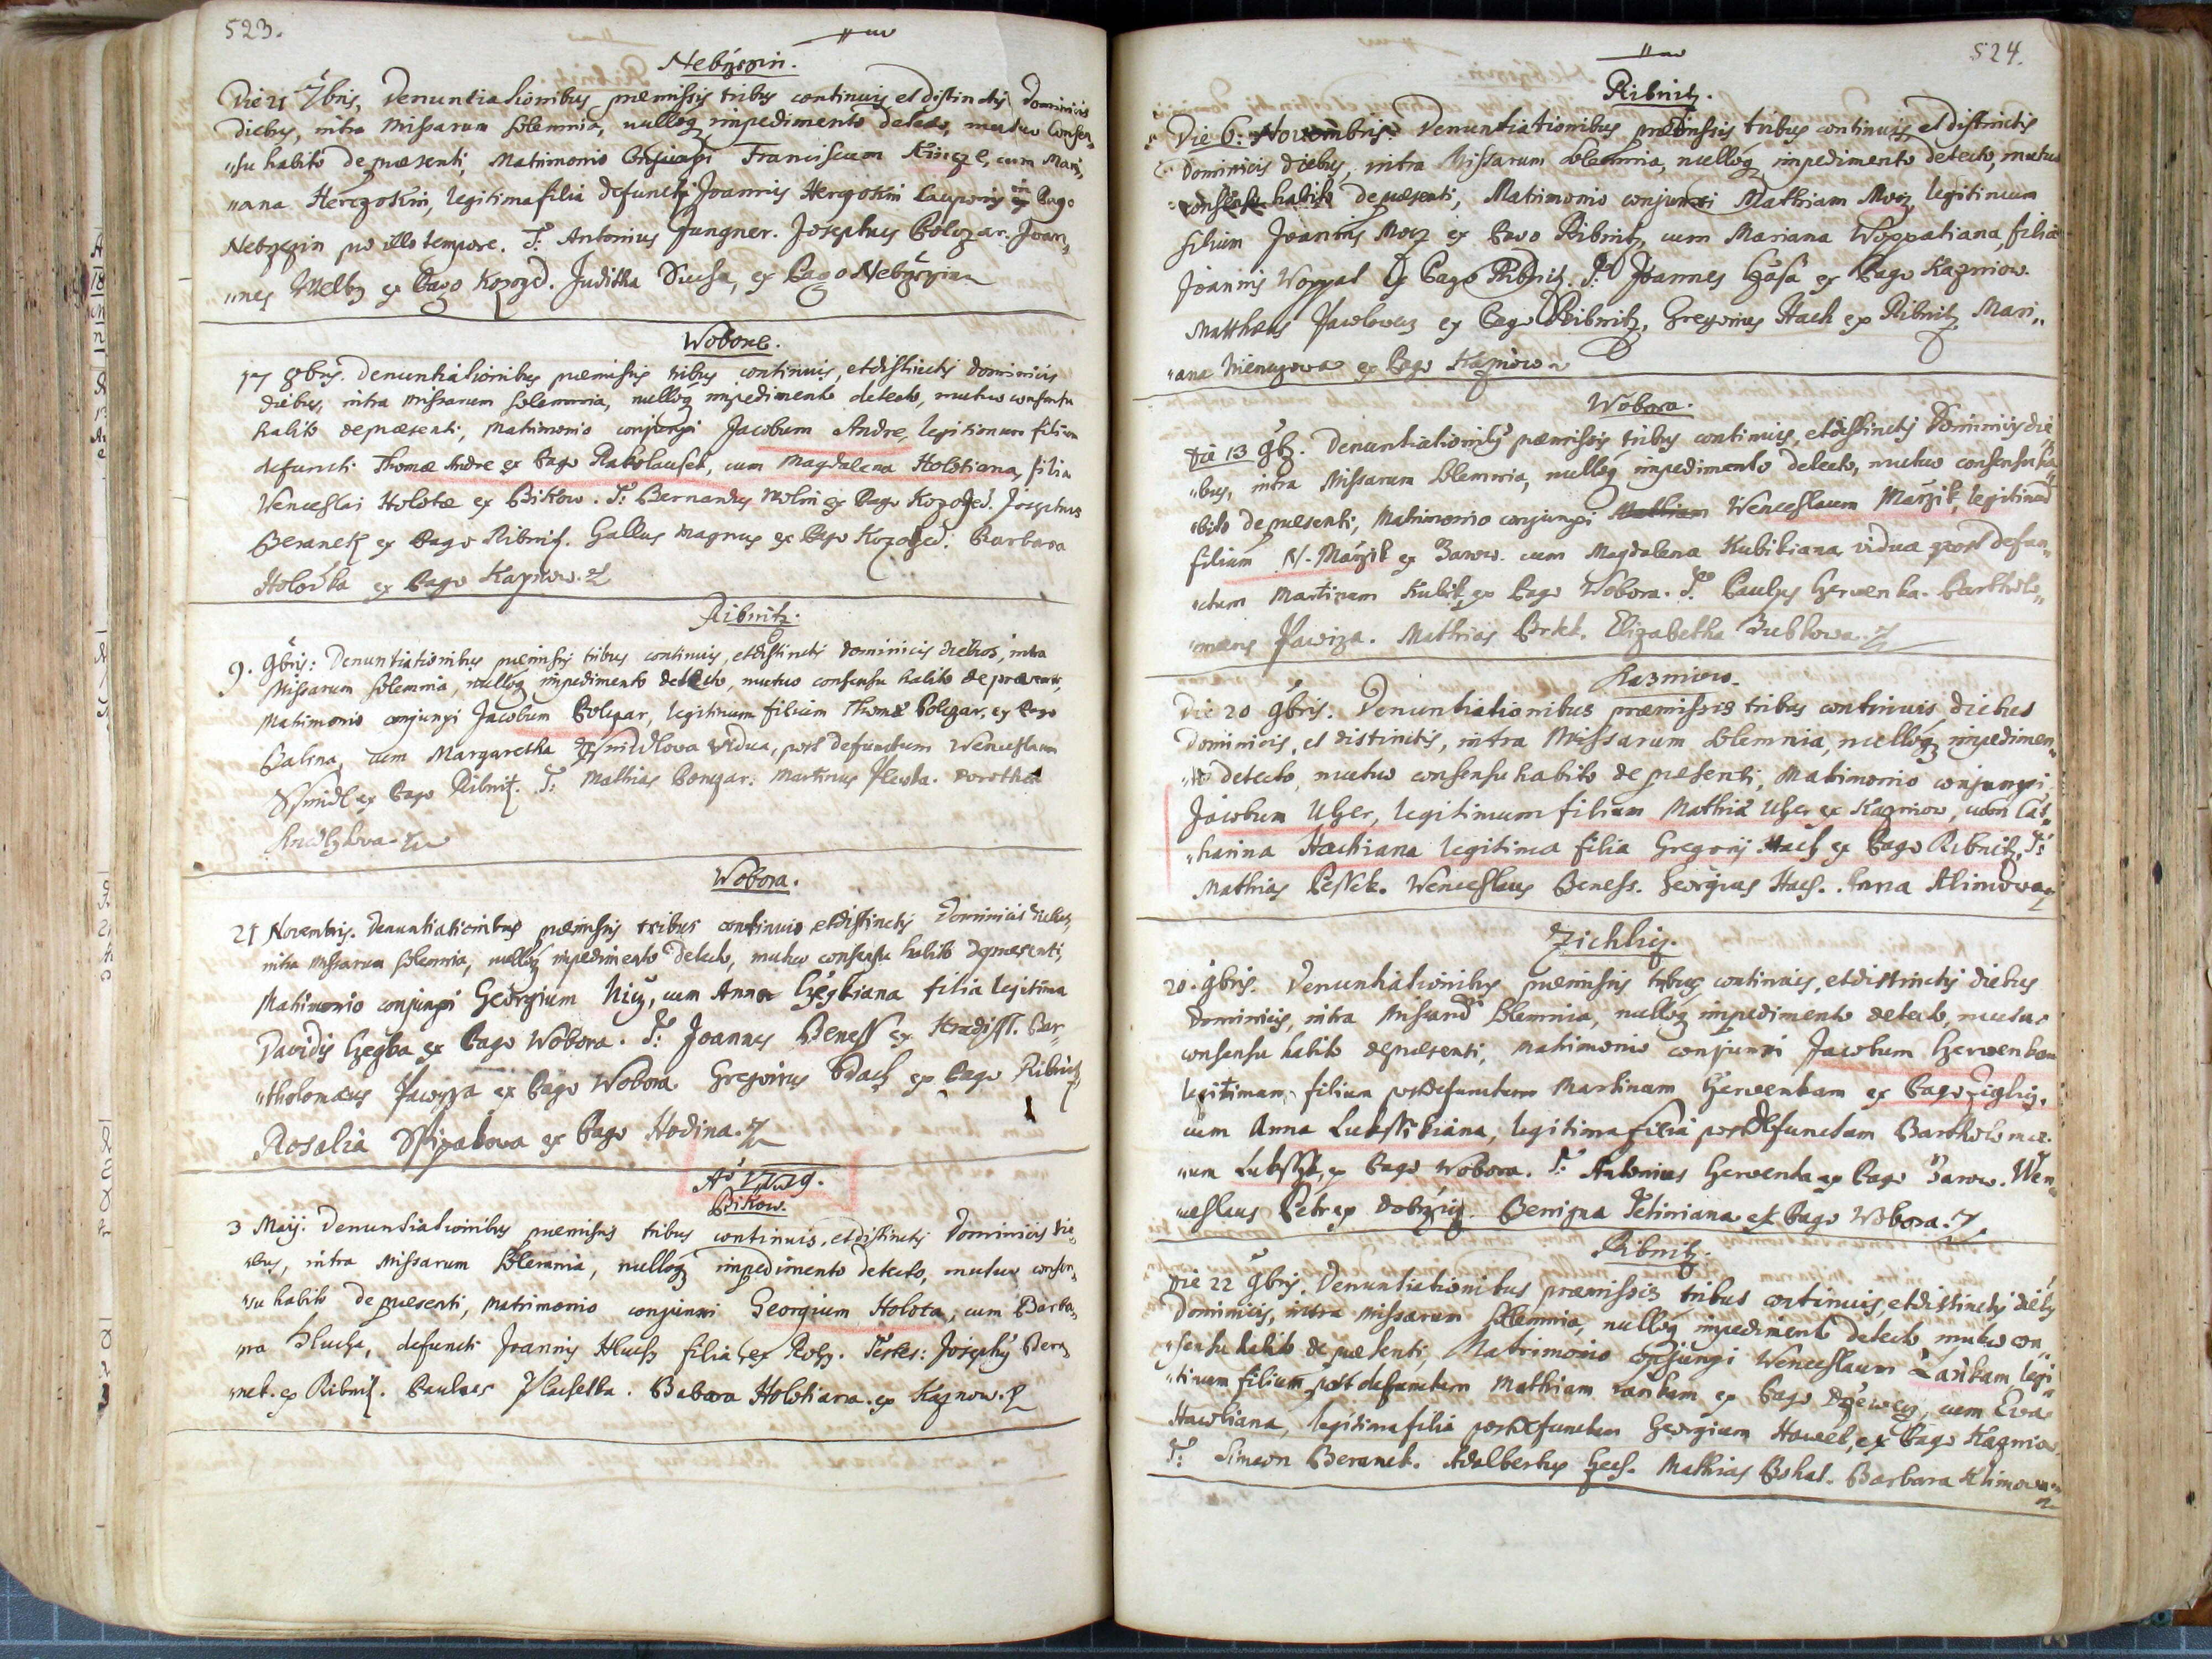 523.
Nebržzin.
Die 21 7bris, Denuntiationibus præmissis tribus continuis et distinctis Dominicis
diebus, intra Missarum solemnia, nulloq impedimento detecto, mutuo Consen„
„su habito de præsenti, Matrimonio Conjunxi Franciscum Kinczl, cum Mari„
„ana Herczokin, legitima filia defuncti Joannis Herczokin Cauponis in Pago
Nebrzezin pro illo tempore. T: Antonius Jungner. Josephus Bolczar. Joan„
„nes Welky ex Pago Kozoged. Juditha Ducha, ex Pago Nebrzezin
Wobore.
17 9bris. Denuntiationibus præmissis tribus continuis, et distinctis Dominicis
diebus, intra Missarum solemnia, nulloq impedimento detecto, mutuo consensu
habito de præsenti, Matrimonio conjunxi Jacobum Andre, legitimum filium
defuncti Thomæ Andre ex Pago Rakolausek, cum Magdalena Holotiana, filia
Wenceslai Holotæ ex Bikow. T: Bernardus Molin ex Pago Kozoged. Josephus
Beranek ex Pago Ribnitz. Gallus Magnus ex Pago Kozoged. Barbara
Holotka ex Pago Kaznow.
Ribnitz.
9. 9bris: Denuntiationibus præmissis tribus continuis, et distinctis Dominicis diebus, intra
Missarum solemnia, nulloq impedimento detecto, mutuo consensu habito de præsenti,
Matrimonio conjunxi Jacobum Bolczar, legitimum filium Thomæ Bolczar, ex Pago
Calina, cum Margaretha Ssmidlowa vidua, post defunctum Wenceslaum
Ssmidl ex Pago Ribnitz. T: Mathias Bonczar. Martinus Plewka. Dorothea
Wobora.
21 Novembris. Denuntiationibus præmissis tribus continuis et distinctis Dominicis diebus,
intra Missarum solemnia, nulloq impedimento detecto, mutuo consensu habito de præsenti,
Matrimonio conjunxi Georgium Nicz, cum Anna Czegkiana filia legitima
Davidis Czegka ex Pago Wobora. T: Joannes Beness ex Hradisst. Bar„
„tholomæus Pawyza ex Pago Wobora. Gregorius Hach ex Pago Ribnitz.
Rosalia Sskizalowa ex Pago Hodina.
Aō 1719.
Bikow.
3 Maij. Denuntiationibus præmissis tribus continuis, et distinctis Dominicis die„
„bus, intra Missarum solemnia, nulloq impedimento detecto, mutuo consen„
„su habito de præsenti, Matrimonio conjunxi Georgium Holota, cum Barba„
„ra Hlucha, defuncti Joannis Hluchy filia ex Testes: Josephus Bera„
„nek ex Ribnitz. Paulus Plachetka. Babara Holotiana ex Kaznow.
524.
Ribnitz.
Die 6: Novembris. Denuntiationibus præmissis tribus continuis et distinctis
Dominicis diebus, intra Missarum solemnia, nulloq impedimento detecto, mutuo
consensu habito de præsenti, Matrimonio conjunxi Mathiam Mocz, legitimum
filium Joannis Mocz ex Pago Ribnitz, cum Mariana Woppatiana, filia
Joannis Woppat ex Pago Ribnitz. T: Joannes Czasa ex Pago Kazniow.
Matthæus Pawlowcz ex Pago Ribnitz, Gregorius Hach ex Ribnitz, Mari„
„ana Niemczowa ex Pago Kazniow
Wobora.
Die 13 9b. Denuntiationibus præmissis, tribus continuis, et distinctis Dominicis die„
„bus, intra Missarum solemnia, nulloq impedimento detecto, mutuo consensu ha„
„bito de præsenti, Matrimonio conjunxi Mathiam Wenceslaum Marzik, legitimum
filium N. Marzik ex Zarow. cum Magdalena Kubikiana vidua post defun„
„ctum Martinum Kubik ex Pago Wobora. T: Paulus Czerwenka. Bartholo„
„mæus Pawiza. Mathias Brkt. Elizabetha Bubkowa.
Kazniow.
Die 20 9bris. Denuntiationibus præmissis tribus continuis diebus
Dominicis, et distinctis, intra Missarum solemnia, nulloq impedimen„
„to detecto, mutuo consensu habito de præsenti, Matrimonio conjunxi
Jacobum Uher, legitimum filium Mathiæ Uher ex Kazniow, cum Cat„
„harina Hachiana legitima filia Gregorij Hach ex Pago Ribnitz. T:
Mathias Pessek. Wenceslaus Beness. Georgius Hach. Anna Klimowa
Zichlicz.
20. 9bris. Denuntiationibus præmissis tribus continuis, et distinctis diebus
Dominicis, intra Missarum solemnia, nulloq impedimento detecto, mutuo
consensu habito de præsenti, Matrimonio conjunxi Jacobum Czerwenkam
legitimum filium post defunctum Martinum Czerwenkam ex Pago Ziglicz.
cum Anna Lukssikiana, legitima filia post defunctum Bartholomæ„
„um Lukssyk, ex Pago Wobora. T: Antonius Czerwenka ex Pago Zarow. Wen„
„ceslaus Petr ex Dobrzicz. Benigna Petiniana ex Pago Wobora.
Ribnitz.
Die 22 9bris. Denuntiationibus præmissis tribus continuis, et distinctis diebus
Dominicis, intra Missarum solemnia, nulloq impedimento detecto, mutuo con„
„sensu habito de præsenti, Matrimonio conjunxi Wenceslaum Žarikam legi„
„timum filium post defunctum Mathiam Zarikam ex Pago Drzewecz, cum Eva
Hawliana, legitima filia post defunctum Georgium Hawel, ex Pago Kazniow
T: Simeon Beranek. Adalbertus Czech. Mathias Bohal. Barbara Klimowa